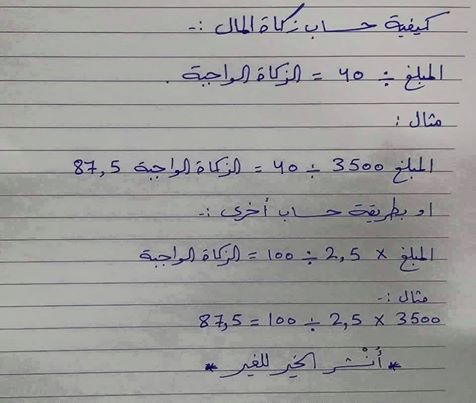 كيفية حساب زكاة المال :-
المبلغ ÷ 40 = الزكاة الواجبة .
مثال :
المبلغ 3500 ÷ 40 = الزكاة الواجبة 87,5
او بطريقة حساب أخرى :-
المبلغ × 2,5 ÷ 100 = الزكاة الواجبة
مثال :-
3500 × 2,5 ÷ 100 = 87,5
* أنْشر الخير للغير *